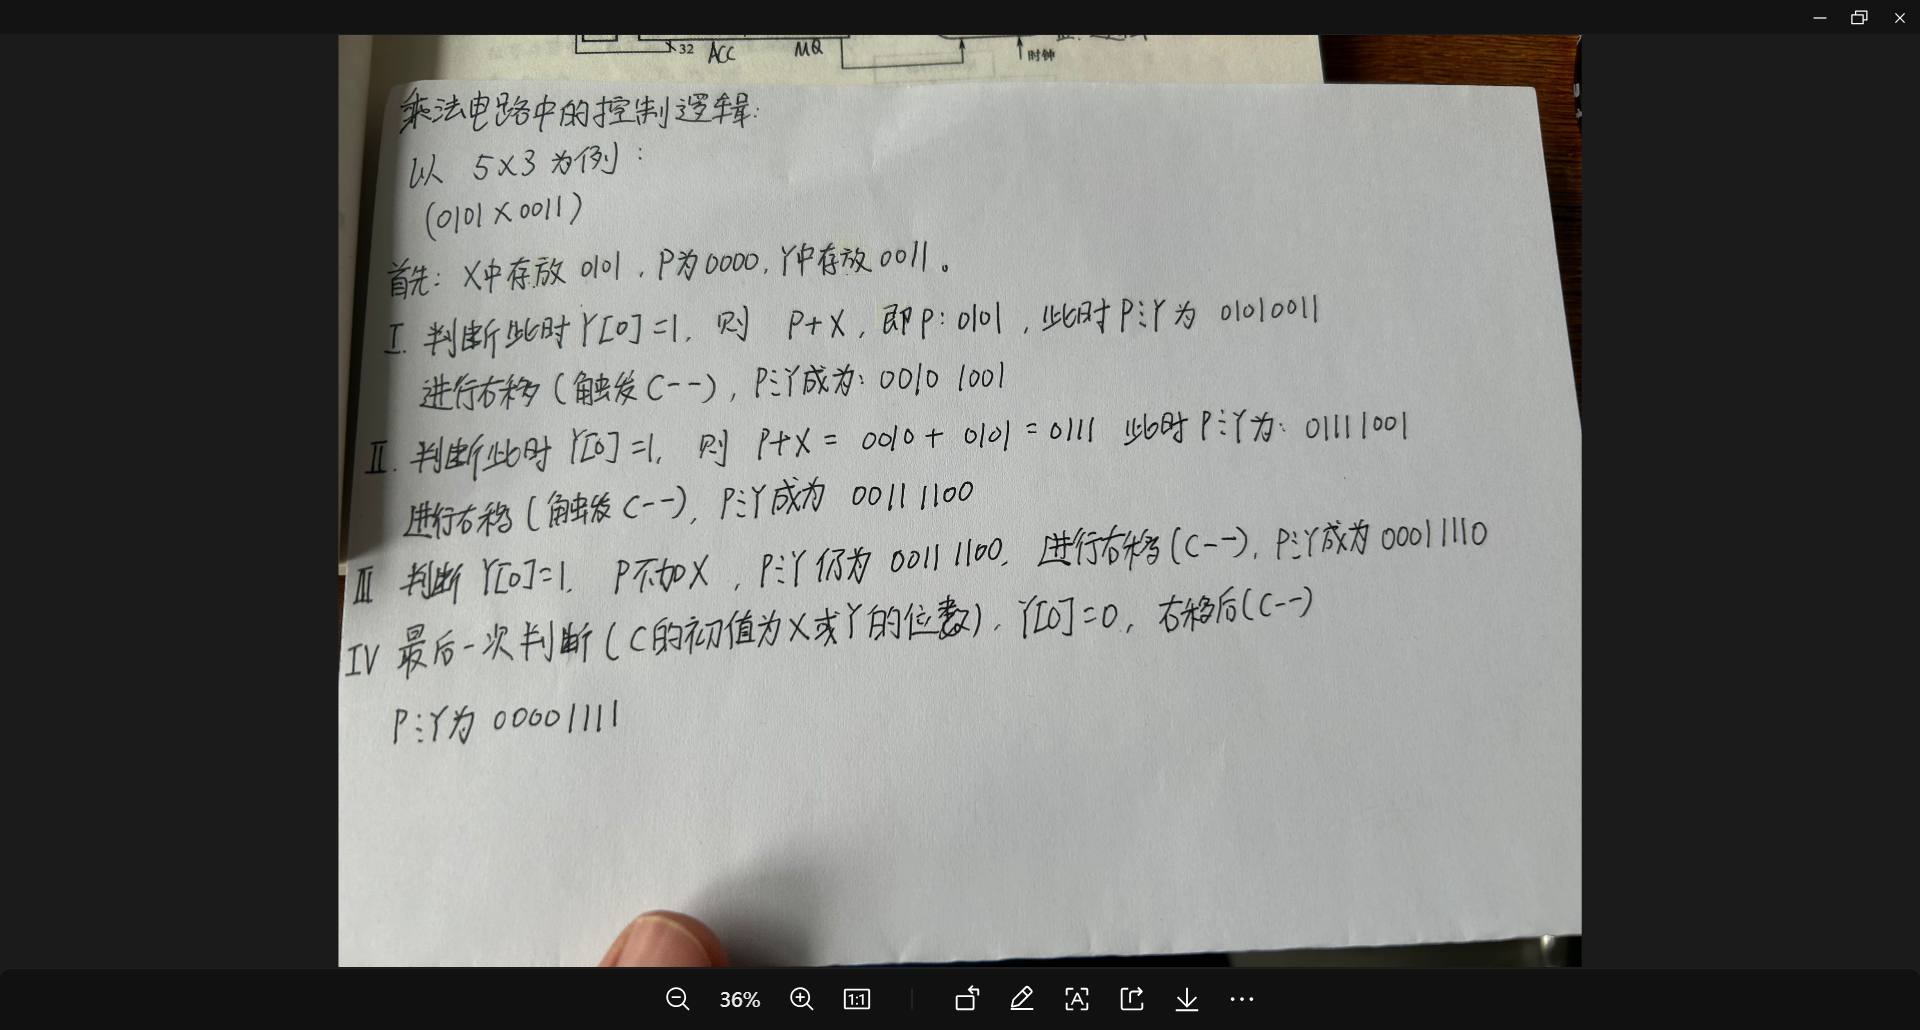 32 ACC MQ 时钟
乘法电路中的控制逻辑:
以 5×3 为例:
(0101×0011)
首先: X中存放 0101, P为0000, Y中存放 0011。
I. 判断此时 Y[0]=1, 则 P+X, 即P: 0101, 此时P⋮Y为 01010011
进行右移(触发C--), P⋮Y成为: 0010 1001
II. 判断此时 Y[0]=1, 则 P+X = 0010 + 0101 = 0111 此时P⋮Y为: 01111001
进行右移(触发C--), P⋮Y成为 0011 1100
III 判断 Y[0]=1, P不加X, P⋮Y仍为 0011 1100, 进行右移(C--), P⋮Y成为 00011110
IV 最后一次判断(C的初值为X或Y的位数), Y[0]=0, 右移后(C--)
P⋮Y为 00001111
36%
1:1